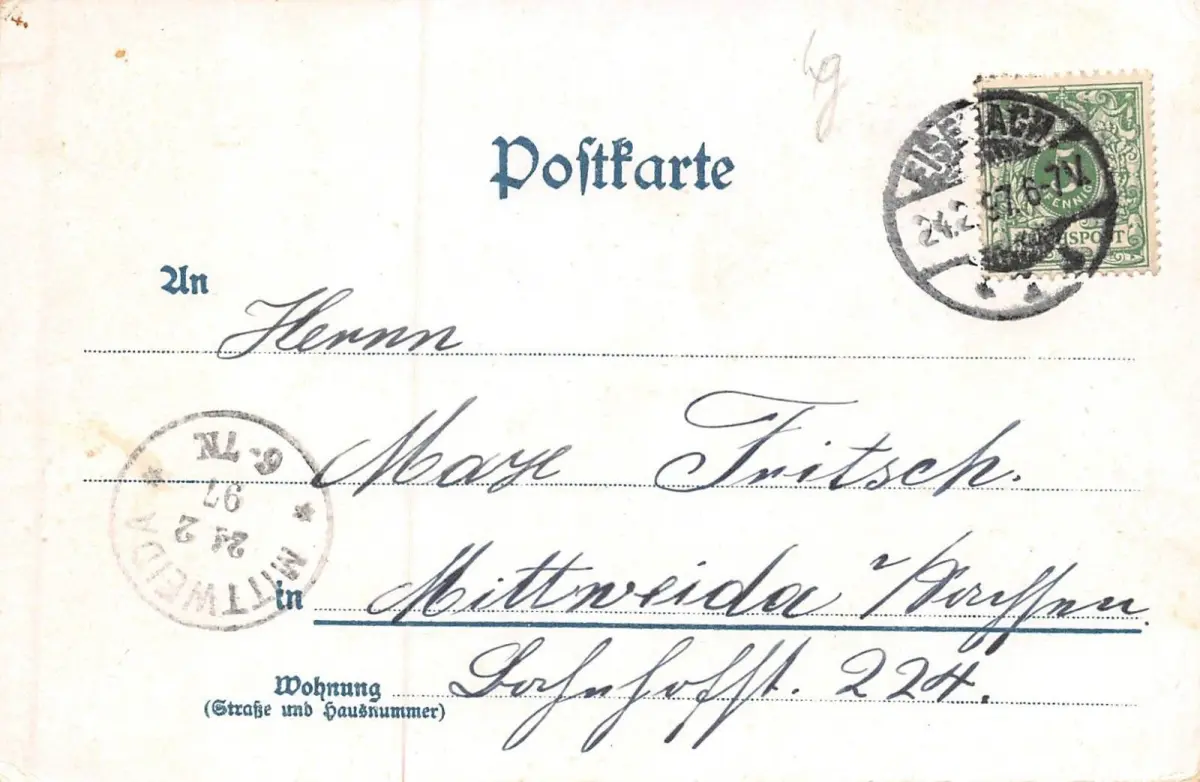 Postkarte
EISENACH
24.2.97. 6-7V.
5
PFENNIG
REICHSPOST
An
Herrn
Max Fritsch.
MITTWEIDA
24 2
97
6-7N.
in Mittweida i/Sachsen
Wohnung Bahnhofst. 224.
(Straße und Hausnummer)